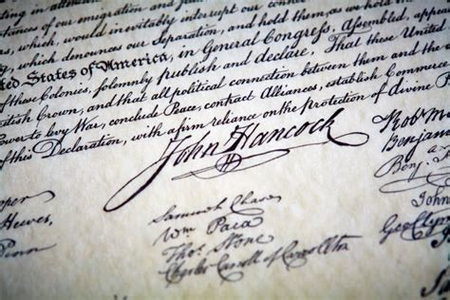 stances of our emigration and
, which, would inevitably interrupt our
which denounces our Separation, and hold them as we hold the
ted States of America, in General Congress, Assembled, appea
of these Colonies, solemnly publish and declare, That these United
British Crown, and that all political connection between them and the
Power to levy War, conclude Peace, contract Alliances, establish Commerce
of this Declaration, with a firm reliance on the protection of divine P
John Hancock
Rob M
Benjam
Benj.
John
Geo Clym
per
Hewes,
Penn
Samuel Chase
Wm Paca
Thos. Stone
Charles Carroll of Carrollton